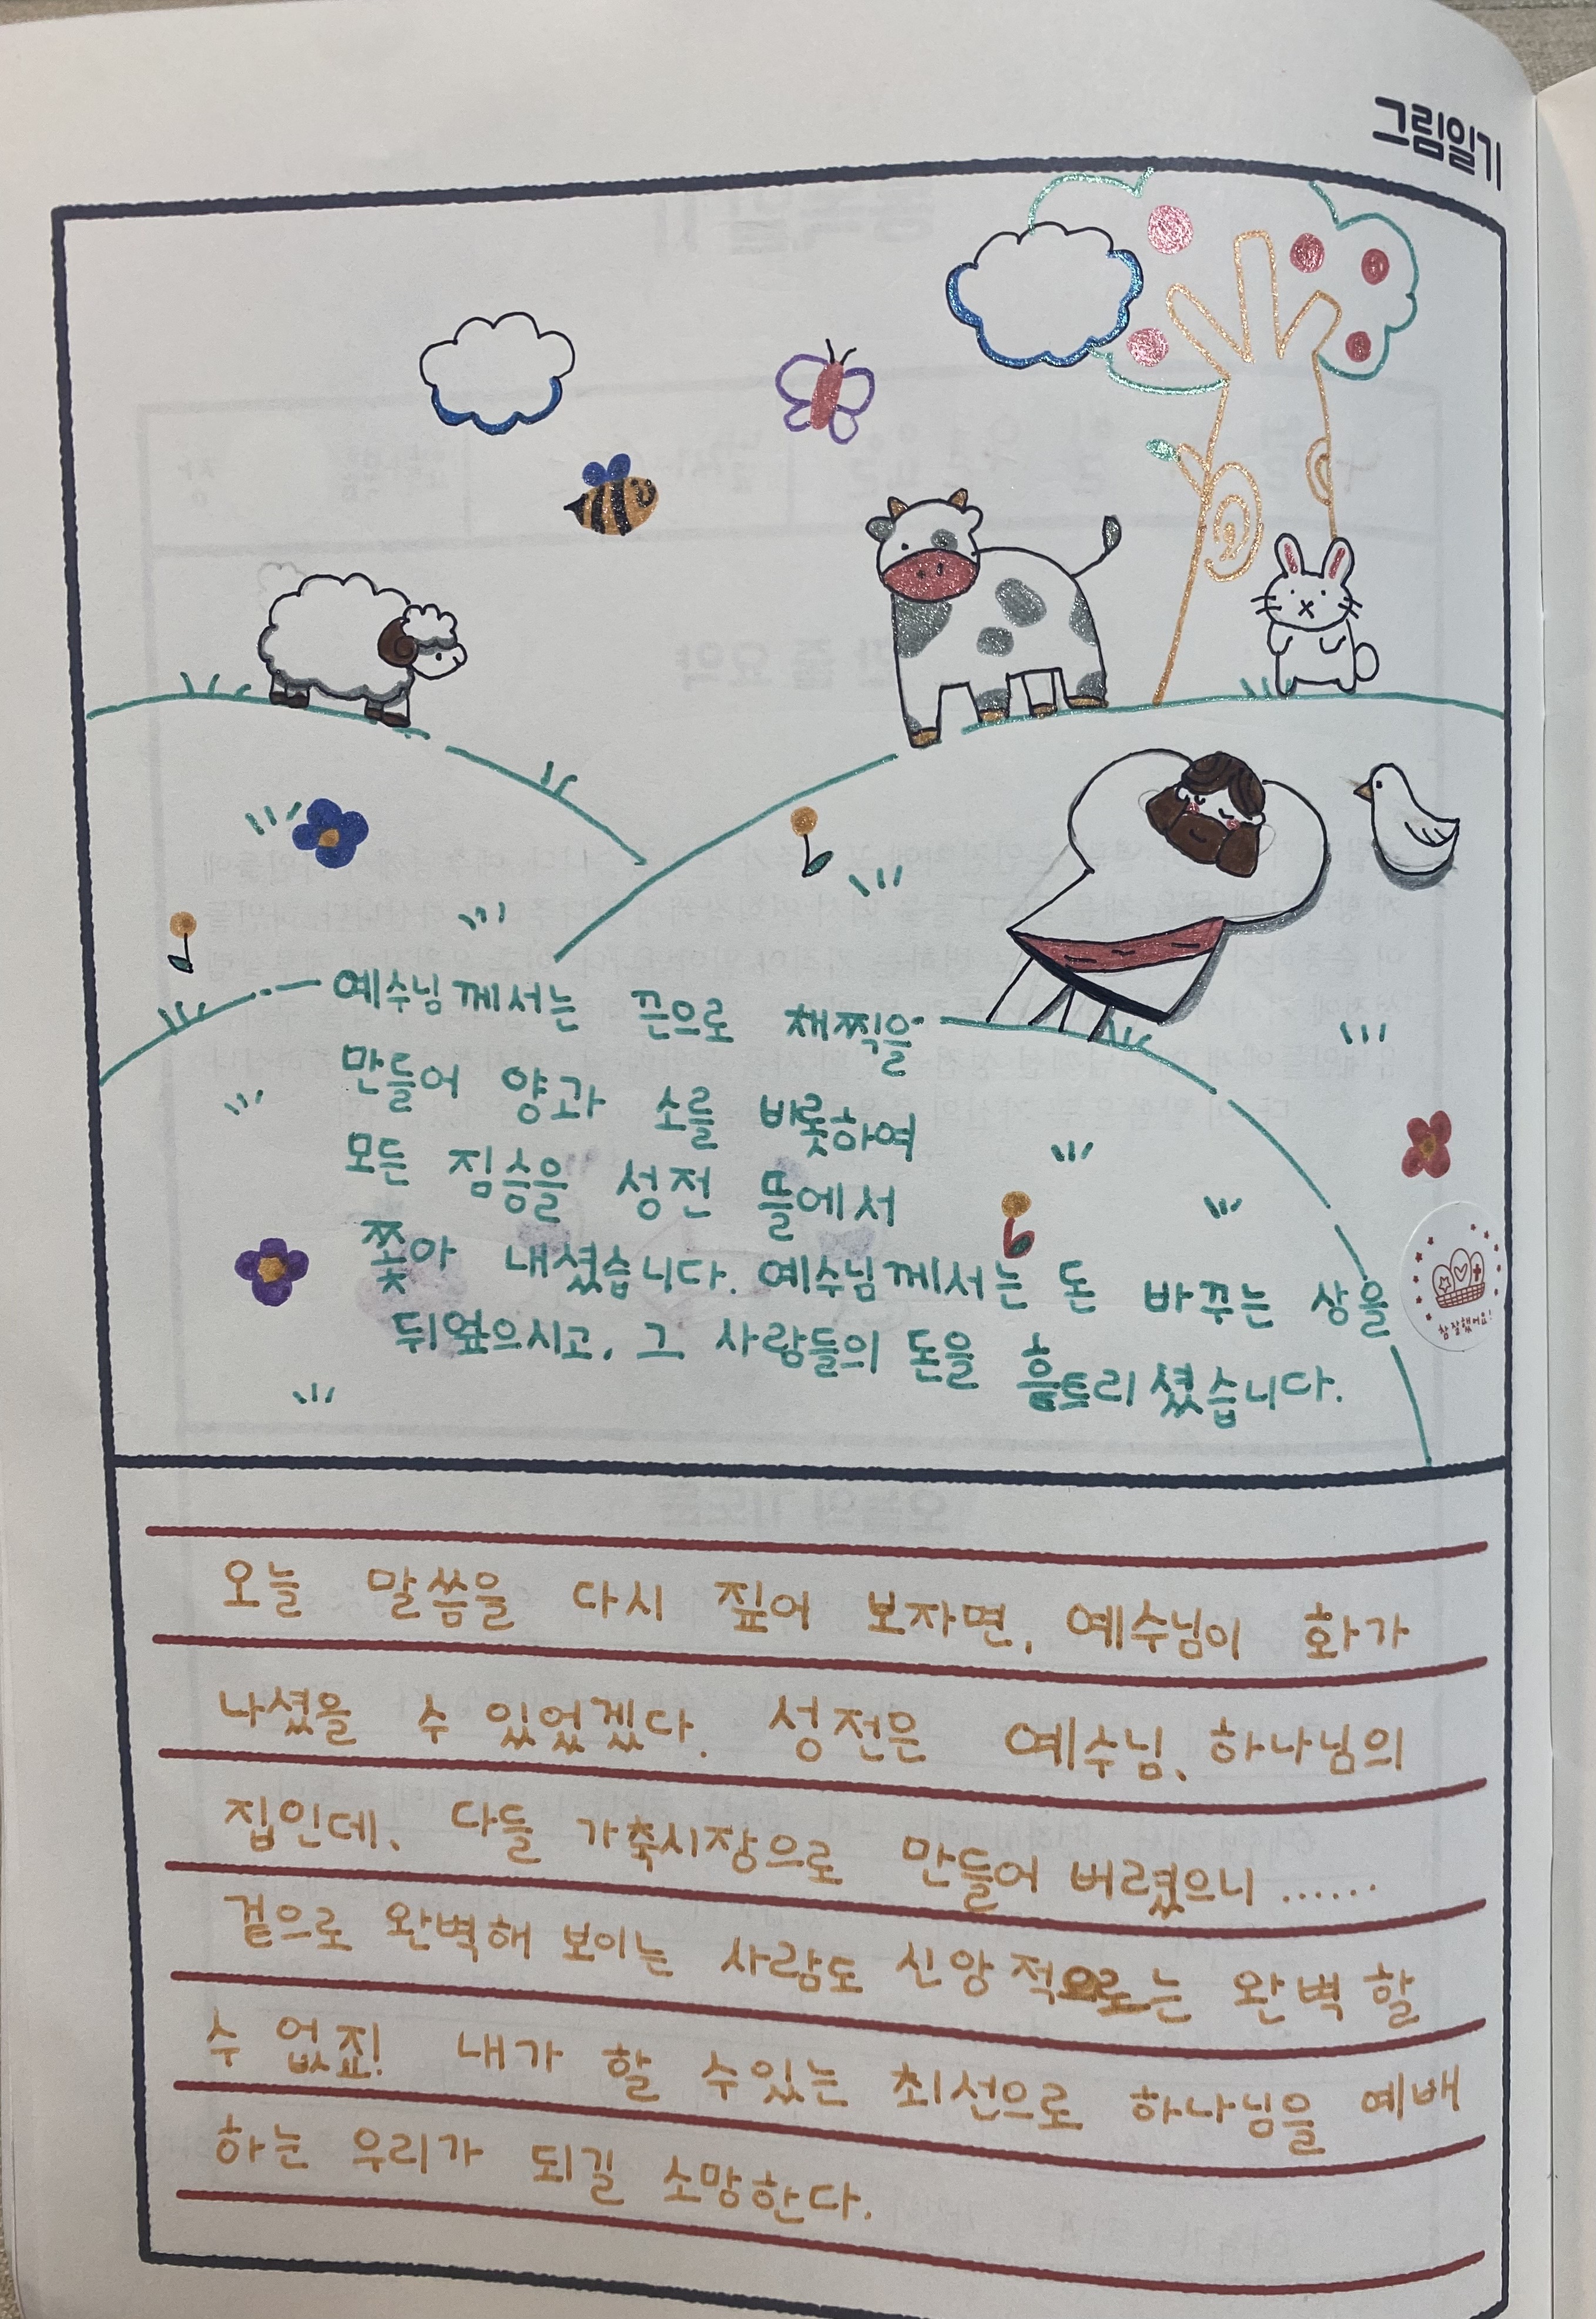 그림일기
예수님께서는 끈으로 채찍을
만들어 양과 소를 비롯하여
모든 짐승을 성전 뜰에서
쫓아 내셨습니다. 예수님께서는 돈 바꾸는 상을
뒤엎으시고, 그 사람들의 돈을 흩트리셨습니다.
참 잘했어요!
오늘 말씀을 다시 짚어 보자면, 예수님이 화가
나셨을 수 있었겠다. 성전은 예수님, 하나님의
집인데, 다들 가축시장으로 만들어 버렸으니 ......
겉으로 완벽해 보이는 사람도 신앙적으로는 완벽할
수 없죠! 내가 할 수있는 최선으로 하나님을 예배
하는 우리가 되길 소망한다.